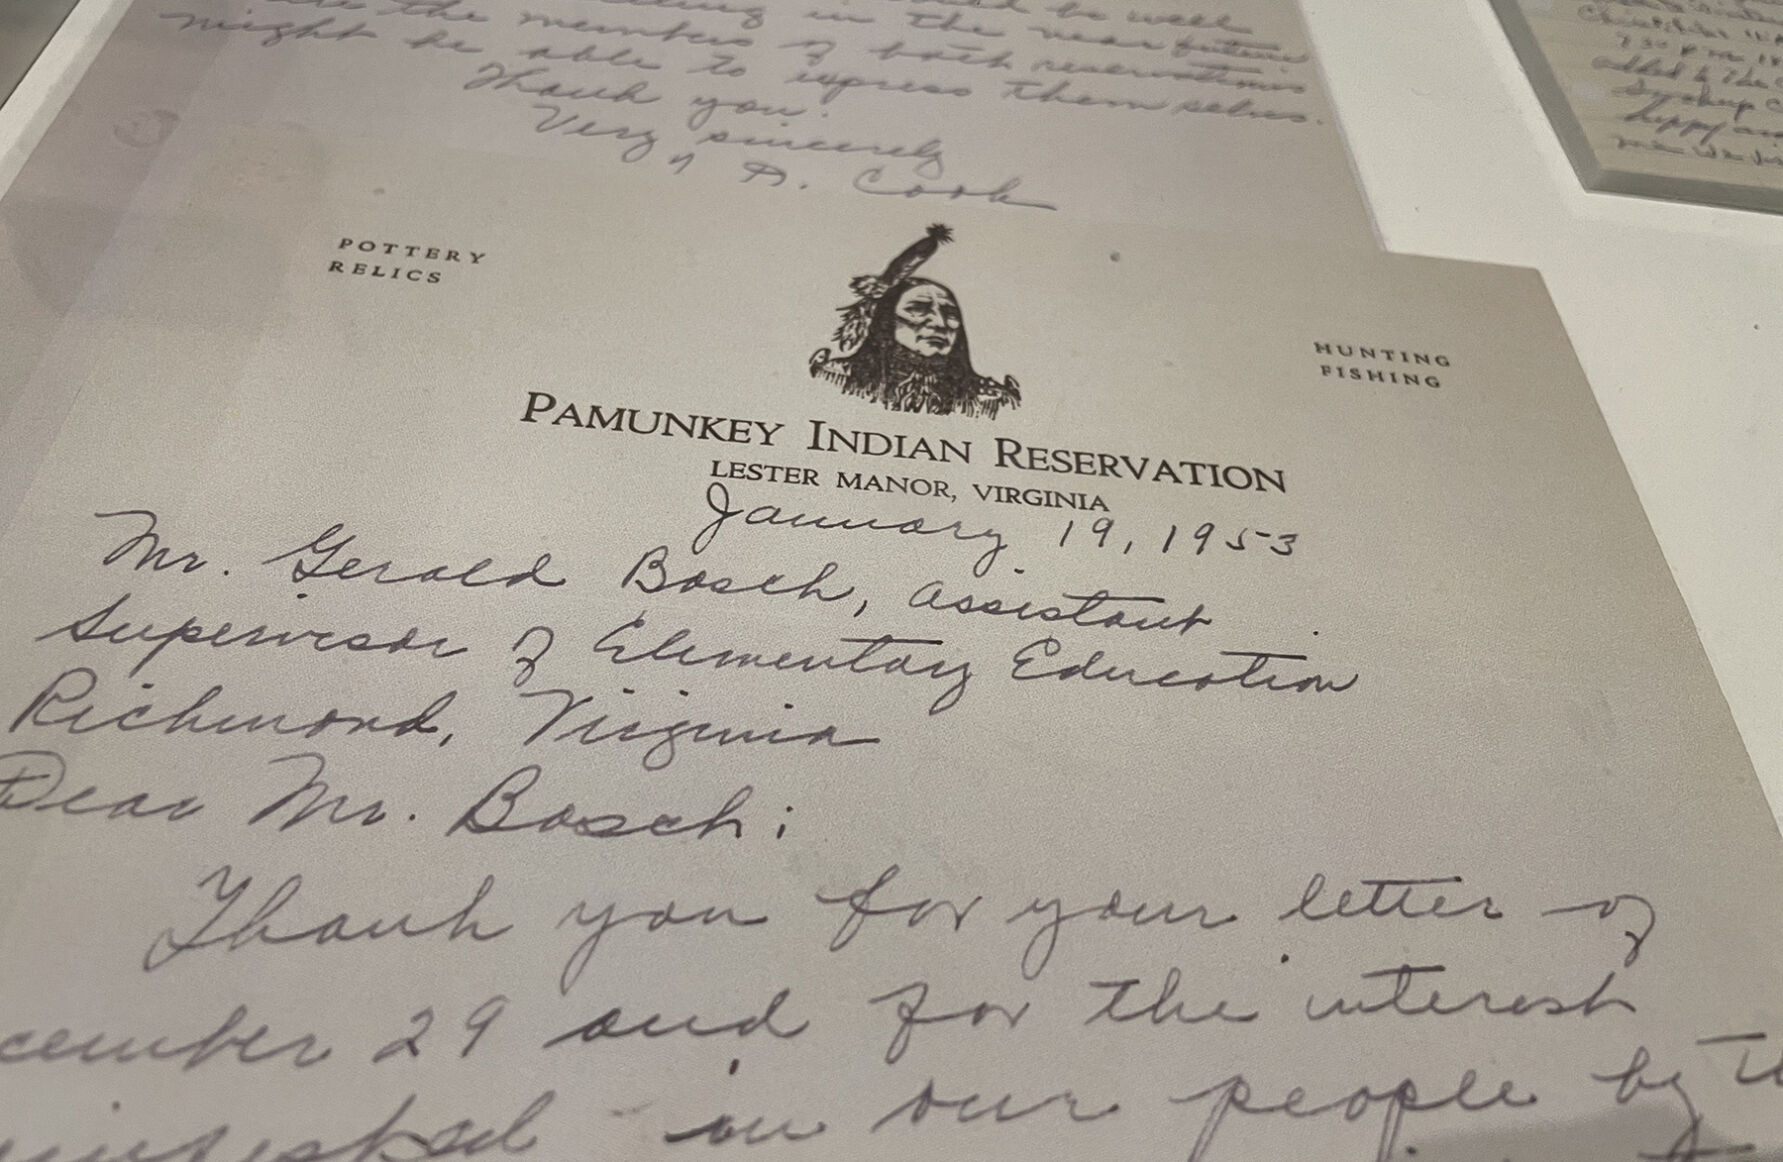 be well
the members of both reservations
might be able to express them selves.
Thank you.
Very sincerely
D. Cook
POTTERY
RELICS
HUNTING
FISHING
PAMUNKEY INDIAN RESERVATION
LESTER MANOR, VIRGINIA
January 19, 1953
Mr. Gerald Bosch, Assistant
Supervisor of Elementary Education
Richmond, Virginia
Dear Mr. Bosch:
Thank you for your letter of
cember 29 and for the interest
in our people by